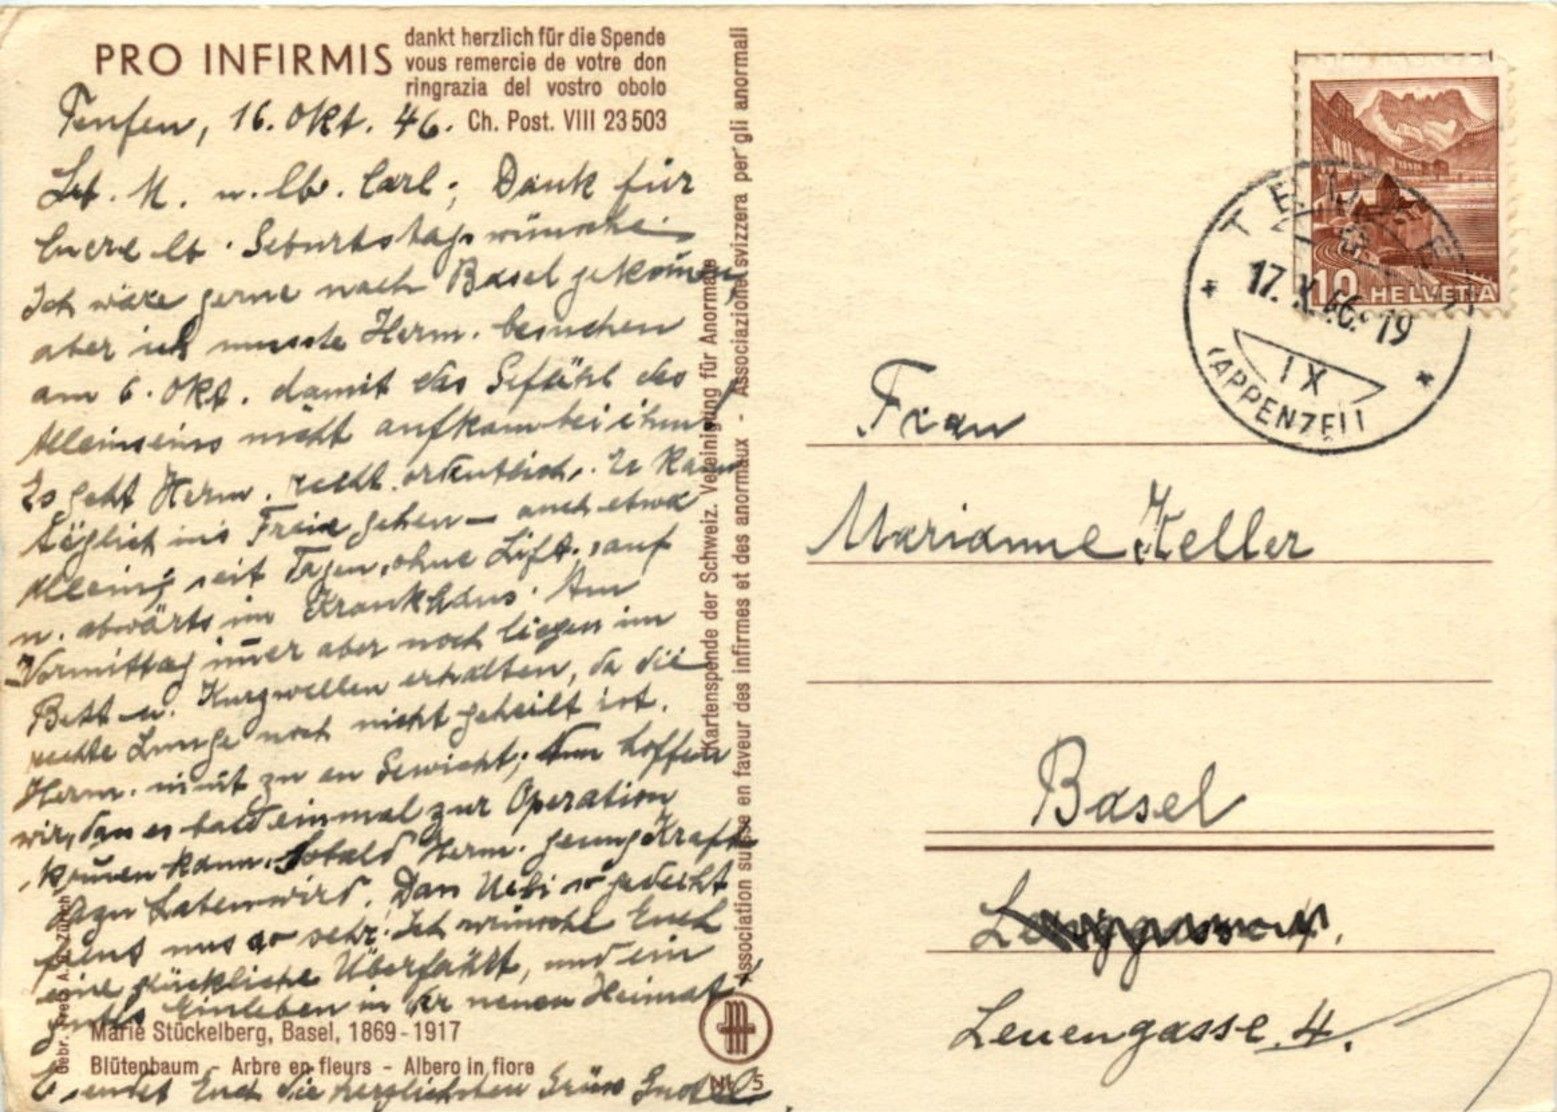 PRO INFIRMIS
dankt herzlich für die Spende
vous remercie de votre don
ringrazia del vostro obolo
Ch. Post. VIII 23503
Teufen, 16. Okt. 46.
M. u. lb. Carl; Dank für
Euere lb. Geburtstagswünsche.
Ich wäre gerne nach Basel gekom̄en,
aber ich musste Herm. besuchen
am 6. Okt. damit das Gefühl des
Alleinseins nicht aufkam bei ihm.
Es geht Herm. recht ordentlich. Er kann
täglich ins Freie gehen – auch etwa
allein, seit Tagen, ohne Lift, auf
u. abwärts im Krankhaus. Am
Vormittag im̄er aber noch liegen im
Bett u. Kurzwellen erhalten, da die
rechte Lunge noch nicht geheilt ist.
Herm. nim̄t zu an Gewicht; hoffen
wir, dass es bald einmal zur Operation
kom̄en kann. Sobald Herm. genug Kräfte
dazu haben wird. Dass Uebi so gedeiht
freut uns so sehr! Ich wünsche Euch
eine glückliche Überfahrt, und ein
gutes Einleben in der neuen Heimat.
Marie Stückelberg, Basel, 1869-1917
Blütenbaum - Arbre en fleurs - Albero in fiore
sendet Euch die herzlichsten Grüsse
Nr. 5
Gebr. Fretz A.G. Zürich
Kartenspende der Schweiz. Vereinigung für Anormale
Association suisse en faveur des infirmes et des anormaux - Associazione svizzera per gli anormali
10 HELVETIA
TEUFEN
17.X.46.-19
IX
(APPENZELL)
Frau
Marianne Keller
Basel
Leuengasse 4.